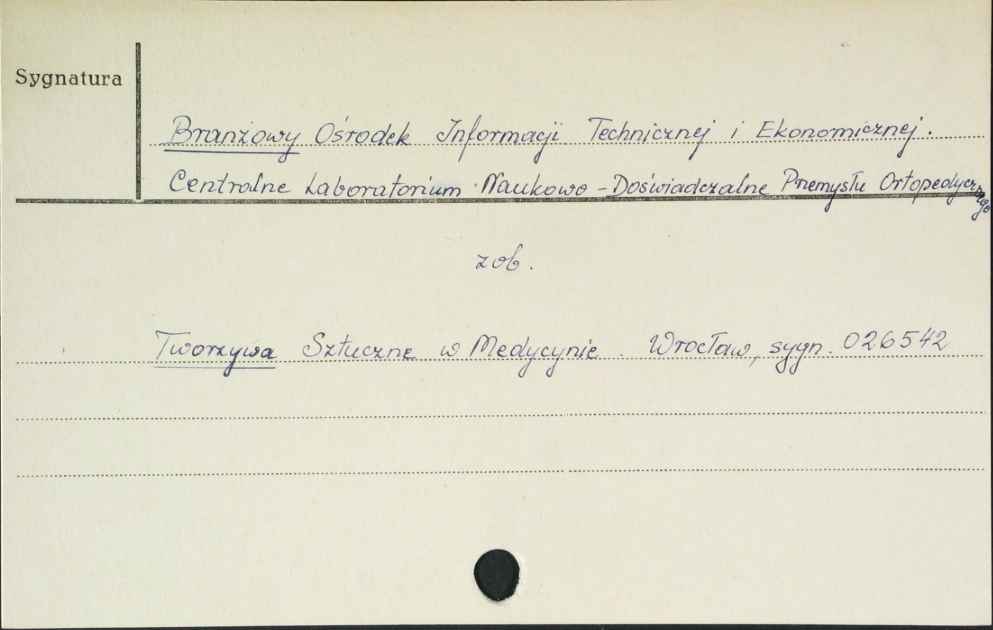 Sygnatura
Branżowy Ośrodek Informacji Technicznej i Ekonomicznej.
Centralne Laboratorium Naukowo-Doświadczalne Przemysłu Ortopedycznego
zob.
Tworzywa Sztuczne w Medycynie. Wrocław, sygn. 026542